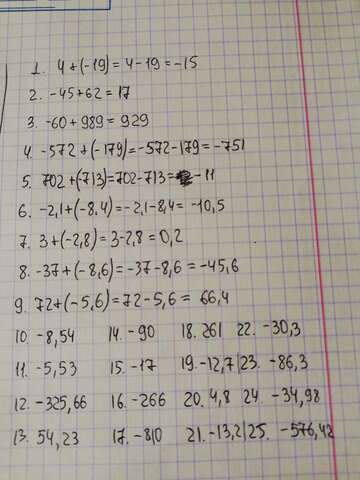 1. 4+(-19)=4-19=-15
2. -45+62=17
3. -60+989=929
4. -572+(-179)=-572-179=-751
5. 702+(-713)=702-713=-11
6. -2,1+(-8,4)=-2,1-8,4=-10,5
7. 3+(-2,8)=3-2,8=0,2
8. -37+(-8,6)=-37-8,6=-45,6
9. 72+(-5,6)=72-5,6=66,4
10. -8,54 14. -90 18. 261 22. -30,3
11. -5,53 15. -17 19. -12,7 23. -86,3
12. -325,66 16. -266 20. 4,8 24. -34,98
13. 54,23 17. -810 21. -13,2 25. -576,42